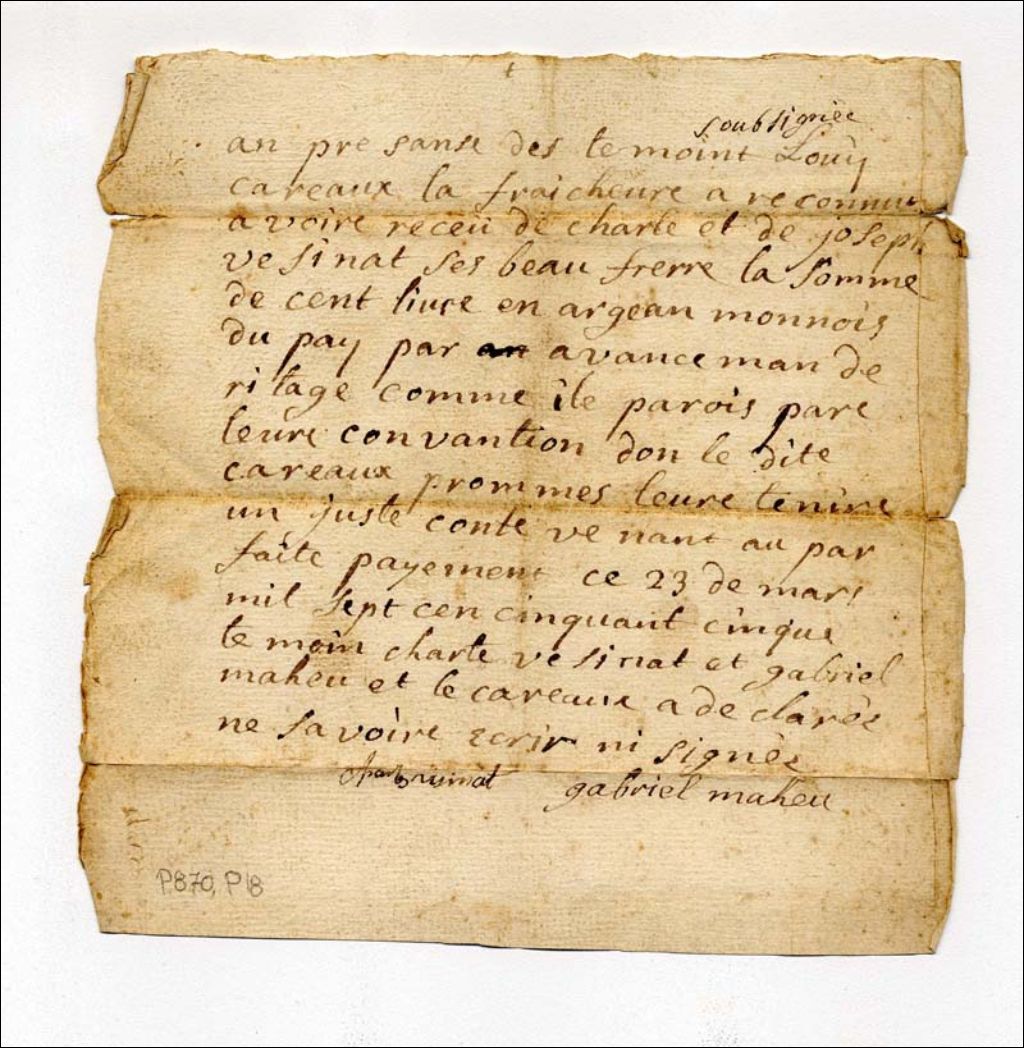 soubsigniée
an pre sanse des te moint Louÿ
careaux la fraicheure a reconnu
avoire receü de charle et de joseph
vesinat ses beau frerre la somme
de cent livre en argean monnois
du pay par an avanceman de
ritage comme ile parois pare
leure convantion don le dite
careaux prommes leure tenire
un juste conte venant au par
faite payement ce 23 de mars
mil sept cen cinquant cinque
te moin charle vesinat et gabriel
maheu et le careaux a de clarés
ne savoire ecrir ni signés
gabriel maheu
P870, P18